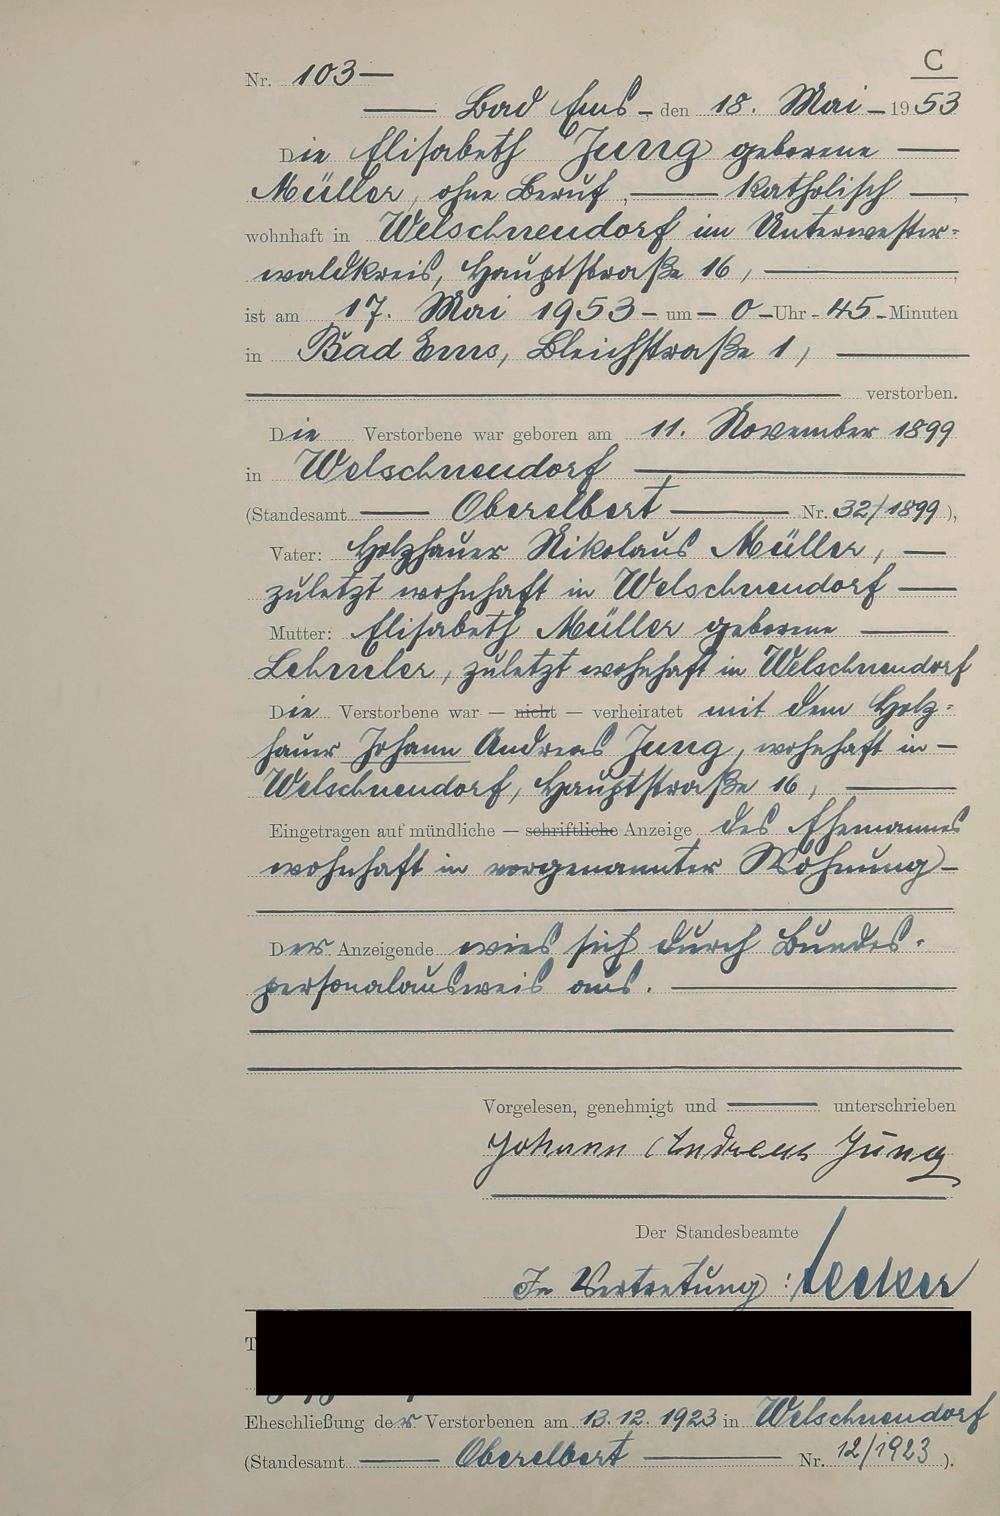 C
Nr. 103 —
— Bad Ems - den 18. Mai - 1953
Die Elisabeth Jung geborene —
Müller, ohne Beruf, — katholisch —,
wohnhaft in Welschneudorf im Unterwester-
waldkreis, Hauptstraße 16, —
ist am 17. Mai 1953 - um - 0 - Uhr - 45 - Minuten
in Bad Ems, Bleichstraße 1, —
— verstorben.
Die Verstorbene war geboren am 11. November 1899
in Welschneudorf —
(Standesamt — Oberelbert — Nr. 32/1899),
Vater: Holzhauer Nikolaus Müller, —
zuletzt wohnhaft in Welschneudorf —
Mutter: Elisabeth Müller geborene —
Lehmler, zuletzt wohnhaft in Welschneudorf
Die Verstorbene war — nicht — verheiratet mit dem Holz-
hauer Johann Andreas Jung, wohnhaft in —
Welschneudorf, Hauptstraße 16, —
Eingetragen auf mündliche — schriftliche Anzeige des Ehemannes
wohnhaft in vorgenannter Wohnung —
Der Anzeigende wies sich durch Bundes-
personalausweis aus. —
Vorgelesen, genehmigt und — unterschrieben
Johann Andreas Jung
Der Standesbeamte
In Vertretung:
Eheschließung der Verstorbenen am 13.12.1923 in Welschneudorf
(Standesamt — Oberelbert — Nr. 12/1923).